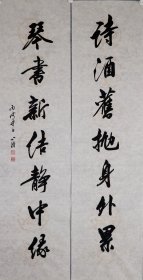 詩酒舊抛身外累
琴書新結静中緣